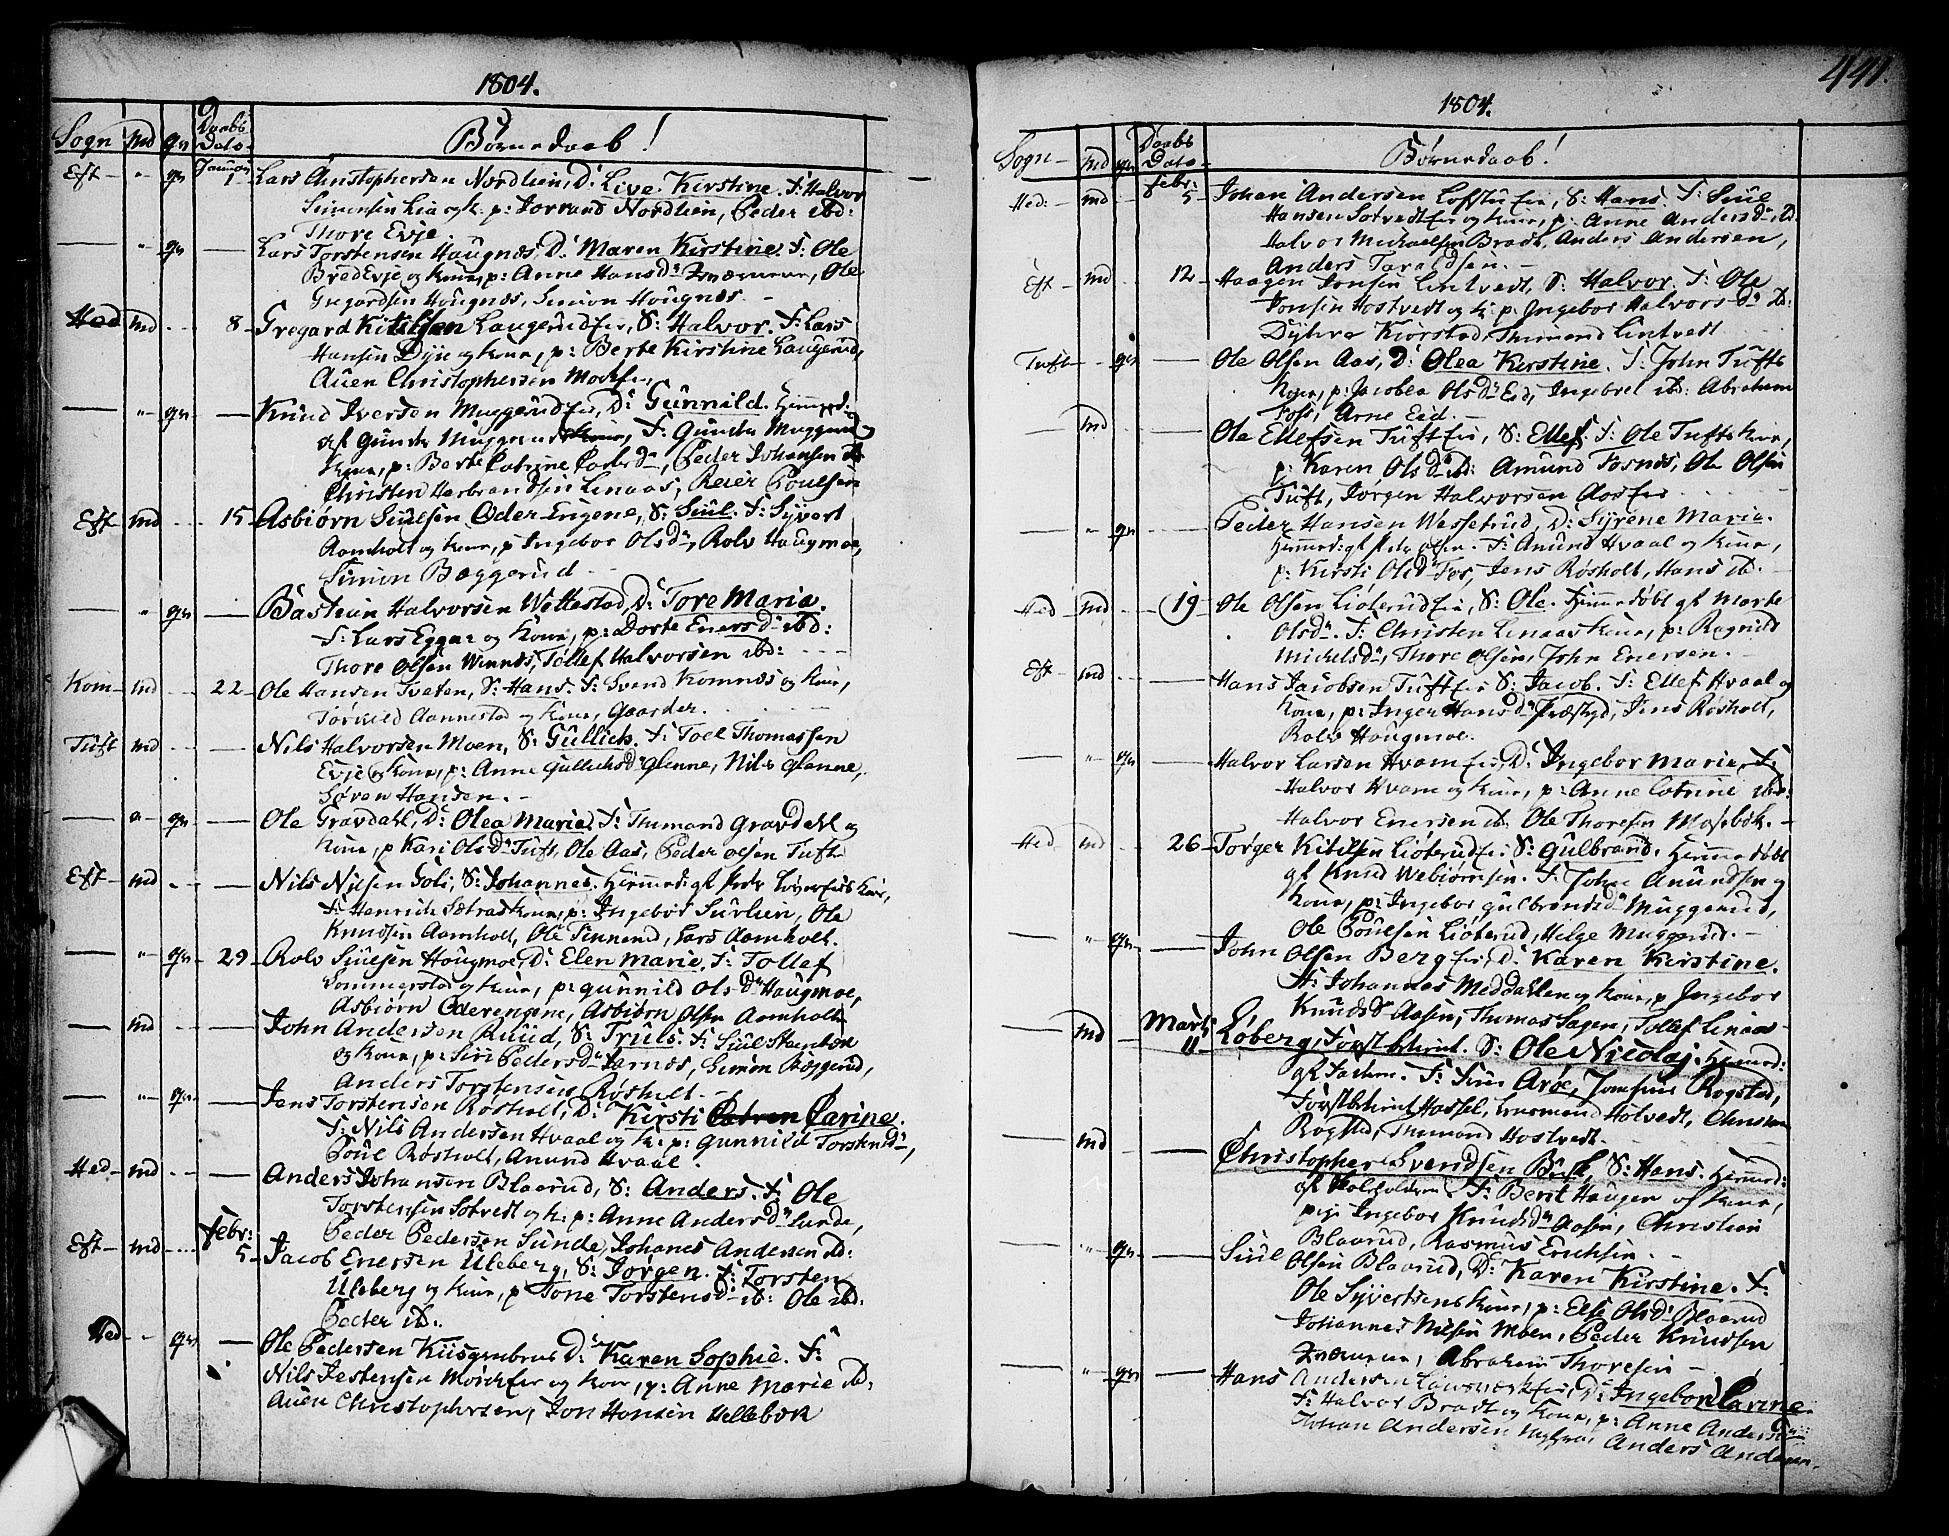 1804.
Sogn Md Qv Daabs Dato Børnedaab!
Eft " qv Januar 1 Lars Christophersen Nordlien, D: Live Kirstine. F: Halvor
Simensen Lia og K. p: Jorrand Nordlien, Peder ibd:
Thore Evje.
" qv Lars Torstensen Haugnæs, D: Maren Kirstine. F: Ole
BredEvje og Kone, p: Anne Hansdr, Ole
Gregardsen Hougnæs, Simon Hougnæs.
Hed md 8 Gregard Kitilsen Laugerudeie, S: Halvor. F: Lars
Hansen Dije og Kone, p: Berte Kirstine Laugerud,
Auen Christophersen
" qv Knud Iversen Muggerudeie, D: Gunnild. Hjemmed:
af Gunder Muggerud Kone, F: Gunder Muggerud og
Kone, p: Berte Catrine Pedersdr, Peder Johansen ib
Christen Herbrandsen Lenaas, Reier Poulsen
Eft md 15 Asbiørn Siulsen Oder Engene, S: Siul. F: Syvert
Aamholt og Kone, p Ingebor Olsdr, Rolv Haugmoe,
Simon Bæggerud
" qv Bastian Halvorsen Wettestad, D: Tore Maria.
F: Lars Eggar og Kone, p: Dorte Enersdr ibd:
Thore Olsen Wennes, Tollef Halvorsen ibd:
Kom md 22 Ole Hansen Tveten, S: Hans. F: Svend Komnæs og Kone,
Torkild Aannestad og Kone, Gaarder.
Tuft md Nils Halvorsen Moen, S: Gullich. F: Toel Thomassen
Evje og Kone, p: Anne Gullichsdr Glenne, Nils Glenne,
Søren Hansen.
" qv Ole Gravdahl, D: Olea Maria F: Thrmand Gravdahl og
Kone, p Kari Olsdr Tuft, Ole Aas, Peder Olsen Tuft
Eft md Nils Nilsen Soli, S: Johannes.
F: Henrich Sætras Kone, p: Ingebor Surlien, Ole
Knudsen Aamholt, Ole Tinnerud, Lars Aamholt.
" qv 29 Rolv Siulsen Hougmoe, D: Elen Marie. F: Tollef
Sommerstad og Kone, p: Gunnild Olsdr Haugmoe,
Asbiørn Oderengene, Asbiørn Olsen Aamholt
md John Andersen Ruud, S: Truls. F: Siul Steenbæk
og Kone, p: Siri Pedersdr Jarnæs, Simon Bæggerud,
Anders Torstensen Røsholt
" qv Jens Torstensen Røsholt, D: Kirsti Parine.
F: Nils Andersen Hvaal og K: p: Gunnild Torstensdr,
Poul Røsholt, Anund Hvaal.
Hed md Anders Johansen Blaarud, S: Anders. F: Ole
Torstensen Sotvedt og K: p: Anne Andersdr Sunde,
Peder Pedersen Sunde, Johanes Andersen ibd:
Eft md Febr: 5 Jacob Enersen Uleberg, S: Jørgen. F: Torsten
Uleberg og Kone, p Tone Torstensdr ib: Ole ibd:
Peder ib.
Hed qv Ole Pedersen D: Karen Sophie. F:
Nils Jestensen og Kone, p: Anne Marie ibd.
Auen Christophersen, Jon Hansen Hellebæk
441.
1804.
Sogn Md qv Daabs Dato Børnedaab!
Hed: md Febr: 5 Johan Andersen Lofstueeie, S: Hans. F: Siul
Hansen Sotvedteie og Kone, p: Anne Andersdr ib.
Halvor Michaelsen Bradt, Anders Andersen,
Anders Taraldsen.
Eft md 12 Haagen Jonsen Lintvedt, S: Halvor. F: Ole
Jonsen Hostvedt og K: p: Ingebor Halvorsdr ib:
Dyhre Kiørstad, Thrmond Lintvedt
Tuft qv Ole Olsen Aas, D: Olea Kirstine. F: John Tufts
Kone, p: Jacobea Olsdr Eid, Ingebret ib: Abraham
Foss, Arne Eid.
md Ole Ellefsen Tufteie, S: Ellef. F: Ole Tufts Kone,
p: Karen Olsdr ib: Amund Fosnæs, Ole Olsen
Tuft, Jørgen Halvorsen Aaseie
" qv Peder Hansen Wessetrud, D: Syrene Maria.
F: Anund Hvaal og Kone,
p: Kirsti Olsdr Foss, Jens Røsholt, Hans ib.
Hed md 19 Ole Olsen Lioterudeie, S: Ole. Hjemmedøbt af Marte
Olsdr. F: Christen Lenaas Kone, p: Ragnild
Michelsdr, Thore Olsen, John Enersen.
Eft md Hans Jacobsen Tufteie S: Jacob. F: Ellef Hvaal og
Kone, p: Inger Hansdr Præstgd, Jens Røsholt,
Rolv Haugmoe.
" qv Halvor Larsen Hvameie D: Ingebor Maria, F:
Halvor Hvam og Kone, p: Anne Catrine ibd:
Halvor Enersen ib. Ole Thoresen Mosebæk.
Hed md 26 Torger Kitilsen Lioterudeie S: Gulbrand. Hjemmedøbt
af Knud Webiørnsen. F: John Anundsen og
Kone, p: Ingebor Gulbrandsdr Muggerud,
Ole Poulsen Lioterud, Helge Muggerud.
" qv John Olsen Bergeie, D: Karen Kirstine.
F: Johannes Meddahlen og Kone, p Ingebor
Knudsdr Aasen, Thomas Sagen, Tollef Linaas
md Marti 11 Løberg, S: Ole Nicolaj. Hjemmed:
F: Arøe, Rogstad,
Hassel, Hotvedt,
Rogsted, Thrmond Hostvedt.
md Christopher Svendsen S: Hans. Hjemmed:
F: Berit Haugen og Kone,
pige Ingebor Knudsdr Aasen, Christian
Blaarud, Rasmus Erichsen
" qv Siul Olsen Blaarud, D: Karen Kirstine. F:
Ole Syvertsens Kone, p: Else Olsdr Blaarud
Johannes Nilsen Moen, Peder Knudsen
Abraham Thoresen
" qv Hans Andersen D: Ingebor Parine.
F: Halvor Bradt og Kone, p: Anne Andersdr
Johan Andersen Anders Andersen.